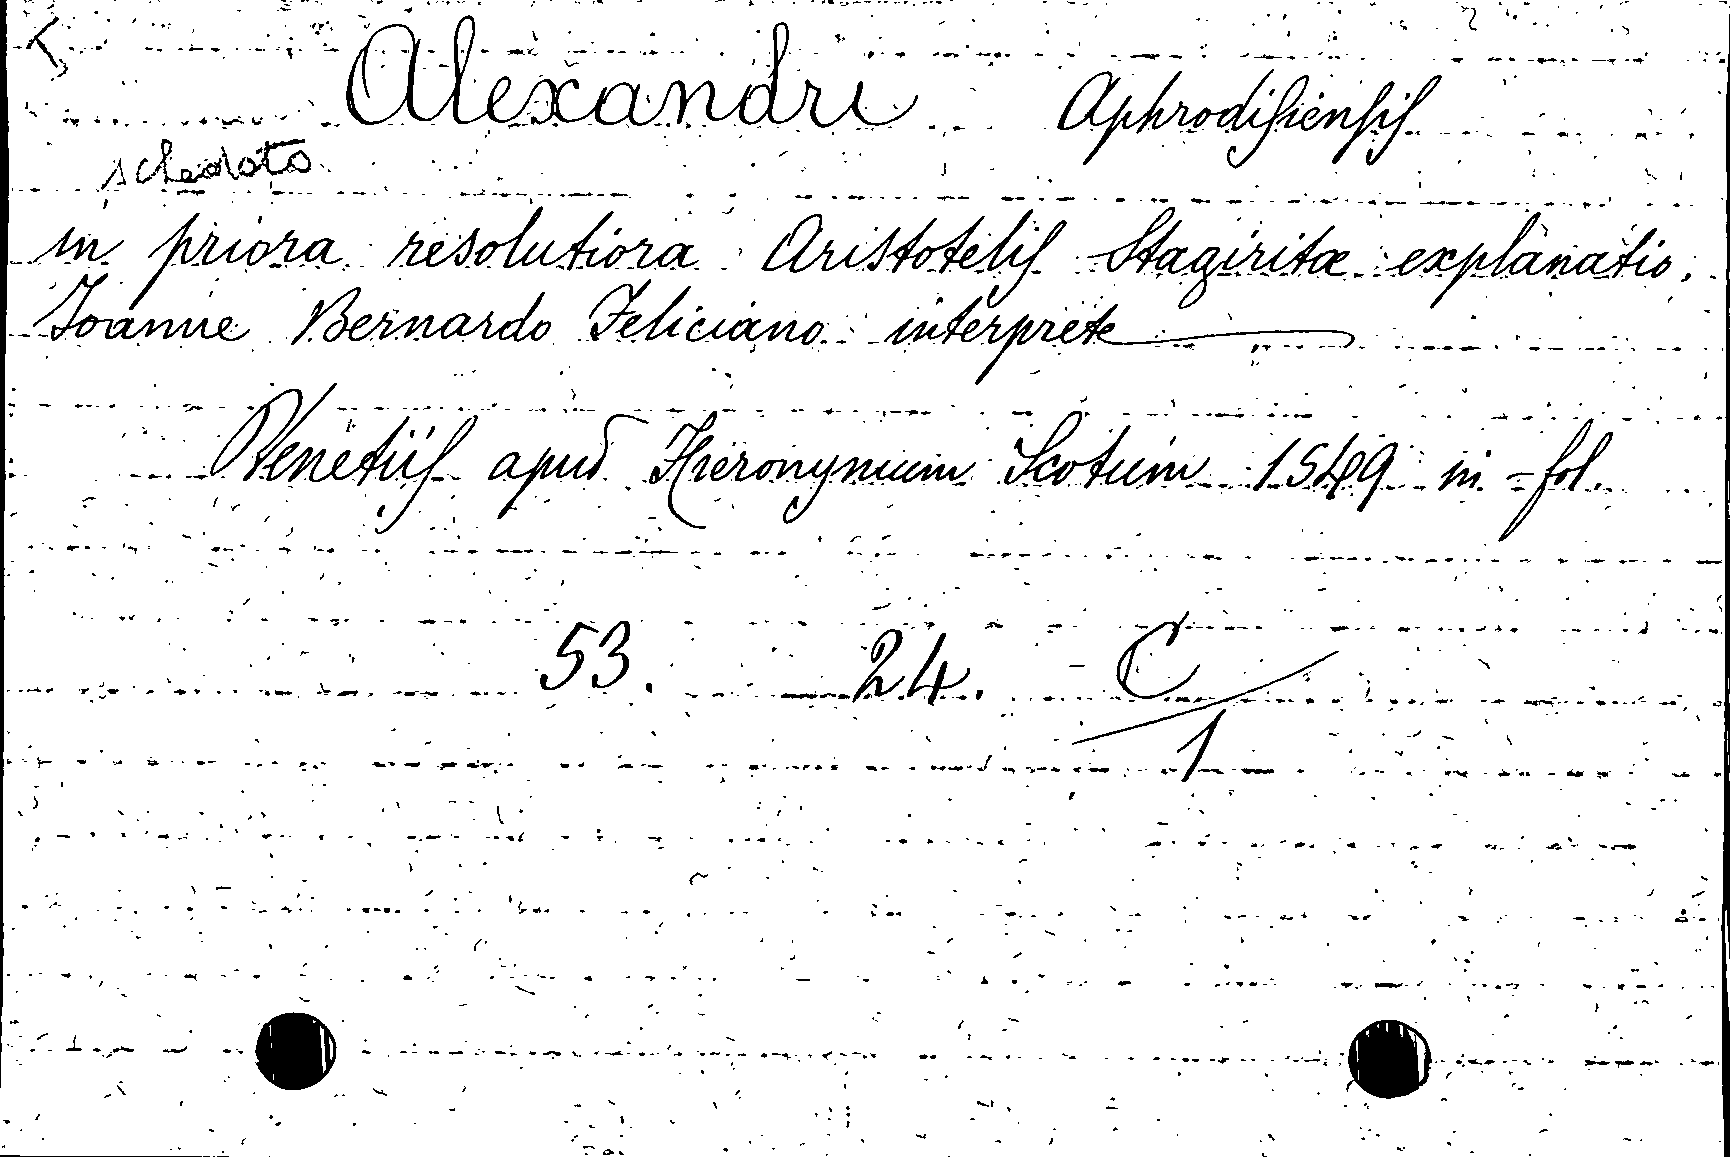 Alexandri Aphrodisiensis
schedato
in priora resolutiora Aristotelis Stagiritæ explanatio,
Joanne Bernardo Feliciano interprete
Venetiis apud Hieronymum Scotum 1549 in-fol.
53. 24. C
1